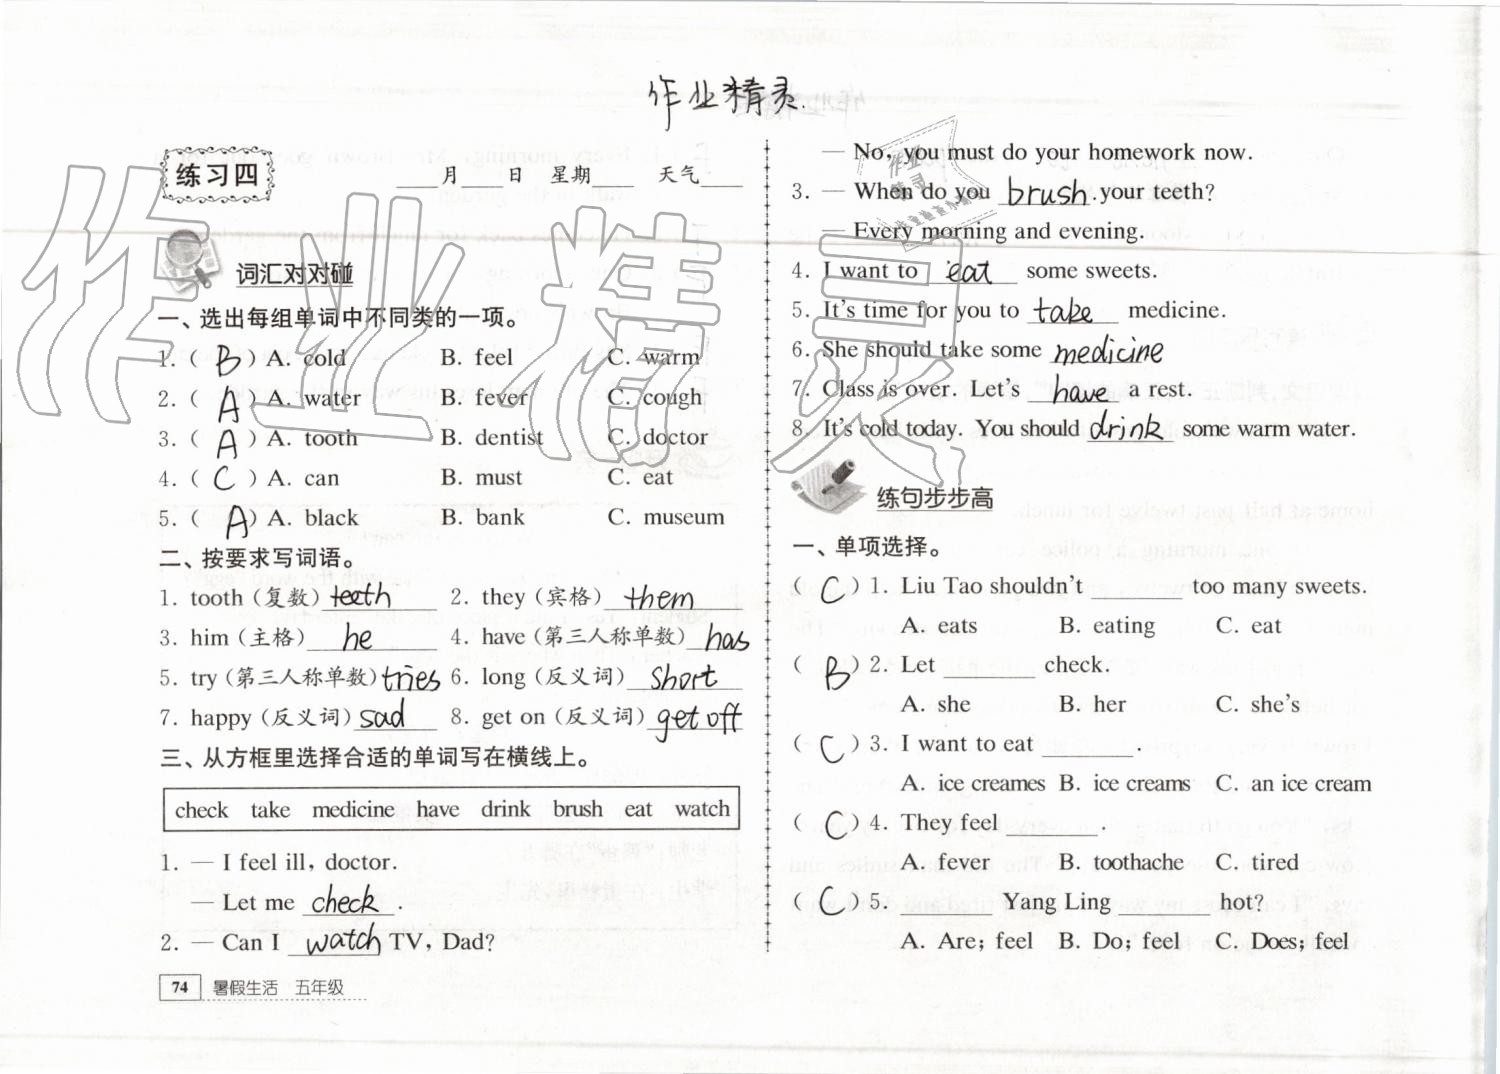 作业精灵
练习四
____月____日 星期____ 天气____
词汇对对碰
一、选出每组单词中不同类的一项。
1. ( B ) A. cold B. feel C. warm
2. ( A ) A. water B. fever C. cough
3. ( A ) A. tooth B. dentist C. doctor
4. ( C ) A. can B. must C. eat
5. ( A ) A. black B. bank C. museum
二、按要求写词语。
1. tooth (复数) teeth 2. they (宾格) them
3. him (主格) he 4. have (第三人称单数) has
5. try (第三人称单数) tries 6. long (反义词) short
7. happy (反义词) sad 8. get on (反义词) get off
三、从方框里选择合适的单词写在横线上。
check take medicine have drink brush eat watch
1. — I feel ill, doctor.
— Let me check .
2. — Can I watch TV, Dad?
74 暑假生活 五年级
— No, you must do your homework now.
3. — When do you brush your teeth?
— Every morning and evening.
4. I want to eat some sweets.
5. It's time for you to take medicine.
6. She should take some medicine
7. Class is over. Let's have a rest.
8. It's cold today. You should drink some warm water.
练句步步高
一、单项选择。
( C ) 1. Liu Tao shouldn't ________ too many sweets.
A. eats B. eating C. eat
( B ) 2. Let ________ check.
A. she B. her C. she's
( C ) 3. I want to eat ________.
A. ice creames B. ice creams C. an ice cream
( C ) 4. They feel ________.
A. fever B. toothache C. tired
( C ) 5. ________ Yang Ling ________ hot?
A. Are; feel B. Do; feel C. Does; feel
作业精灵